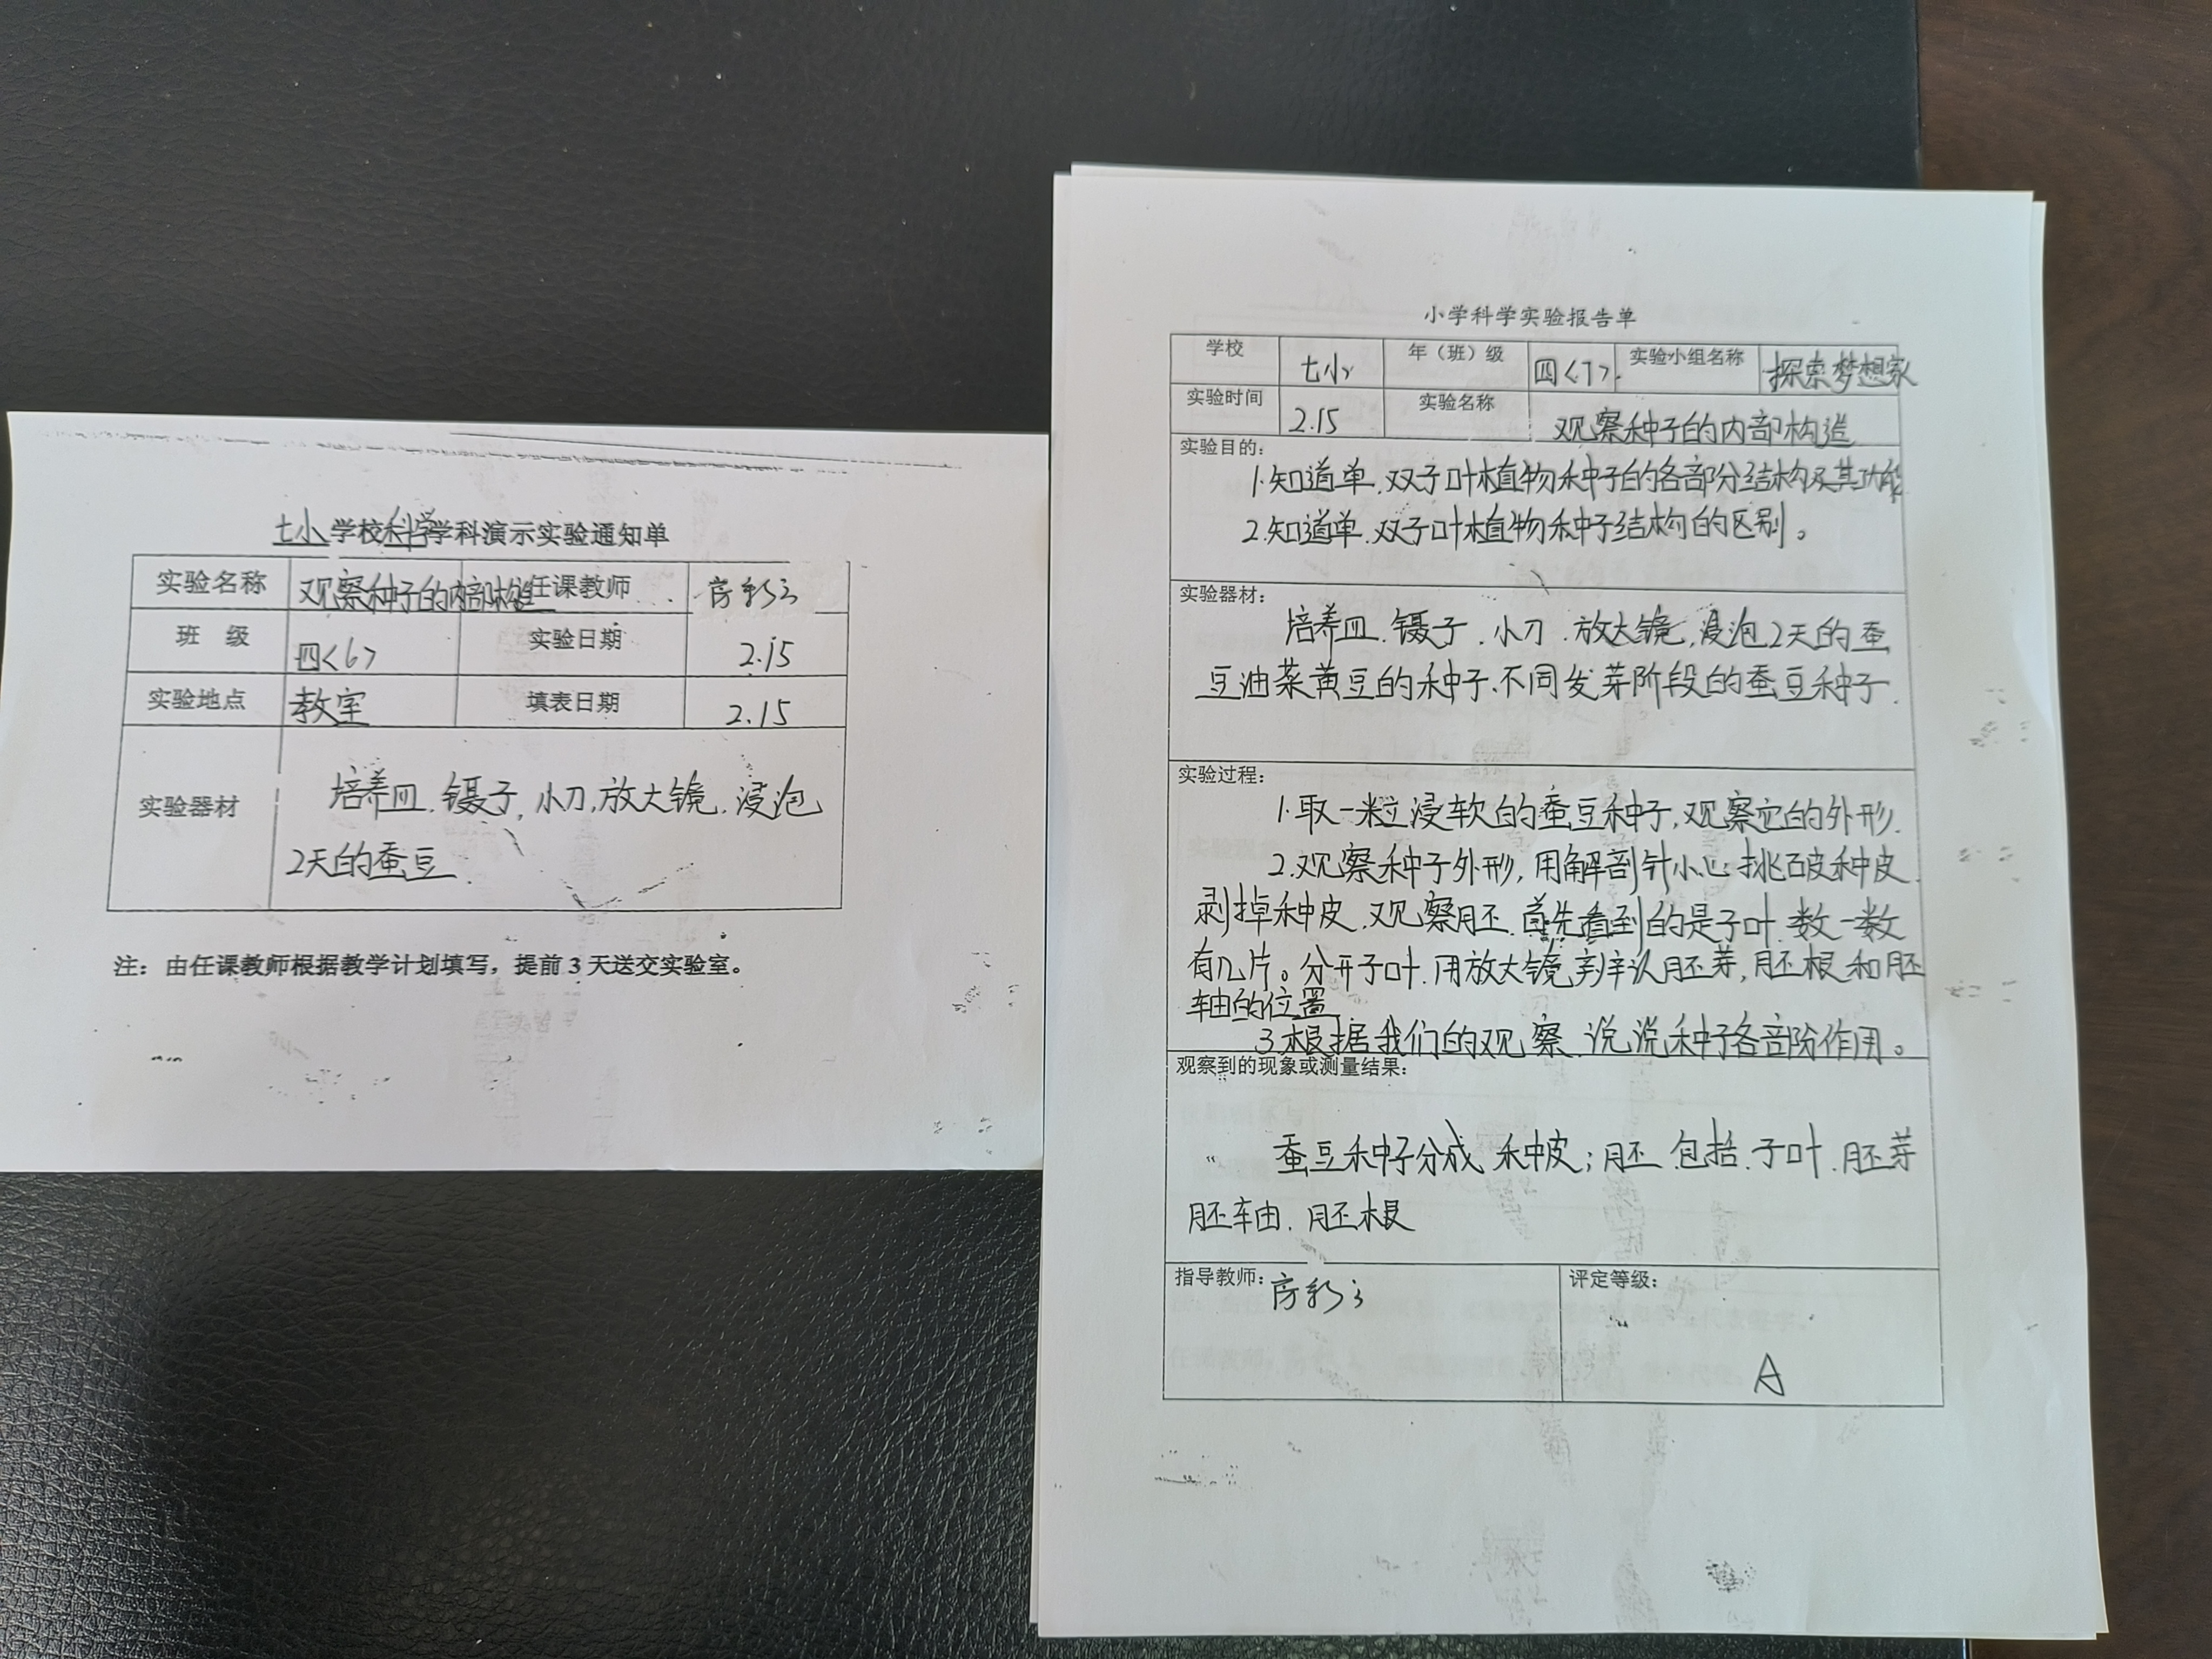 七小学校科学学科演示实验通知单
实验名称 观察种子的内部构造 任课教师
班 级 四<6> 实验日期 2.15
实验地点 教室 填表日期 2.15
实验器材 培养皿.镊子,小刀,放大镜.浸泡
2天的蚕豆.
注：由任课教师根据教学计划填写，提前3天送交实验室。
小学科学实验报告单
学校 七小 年（班）级 四<7>. 实验小组名称 探索梦想家
实验时间 2.15 实验名称 观察种子的内部构造
实验目的:
1.知道单.双子叶植物种子的各部分结构及其功能
2.知道单.双子叶植物种子结构的区别。
实验器材:
培养皿.镊子.小刀.放大镜,浸泡2天的蚕
豆油菜黄豆的种子.不同发芽阶段的蚕豆种子.
实验过程:
1.取一粒浸软的蚕豆种子,观察它的外形.
2.观察种子外形,用解剖针小心挑破种皮.
剥掉种皮.观察胚.首先看到的是子叶.数一数
有几片。分开子叶.用放大镜辨认胚芽,胚根和胚
轴的位置.
3.根据我们的观察.说说种子各部阶作用。
观察到的现象或测量结果:
蚕豆种子分成 种皮;胚 包括.子叶.胚芽
胚轴.胚根
指导教师: 评定等级:
A